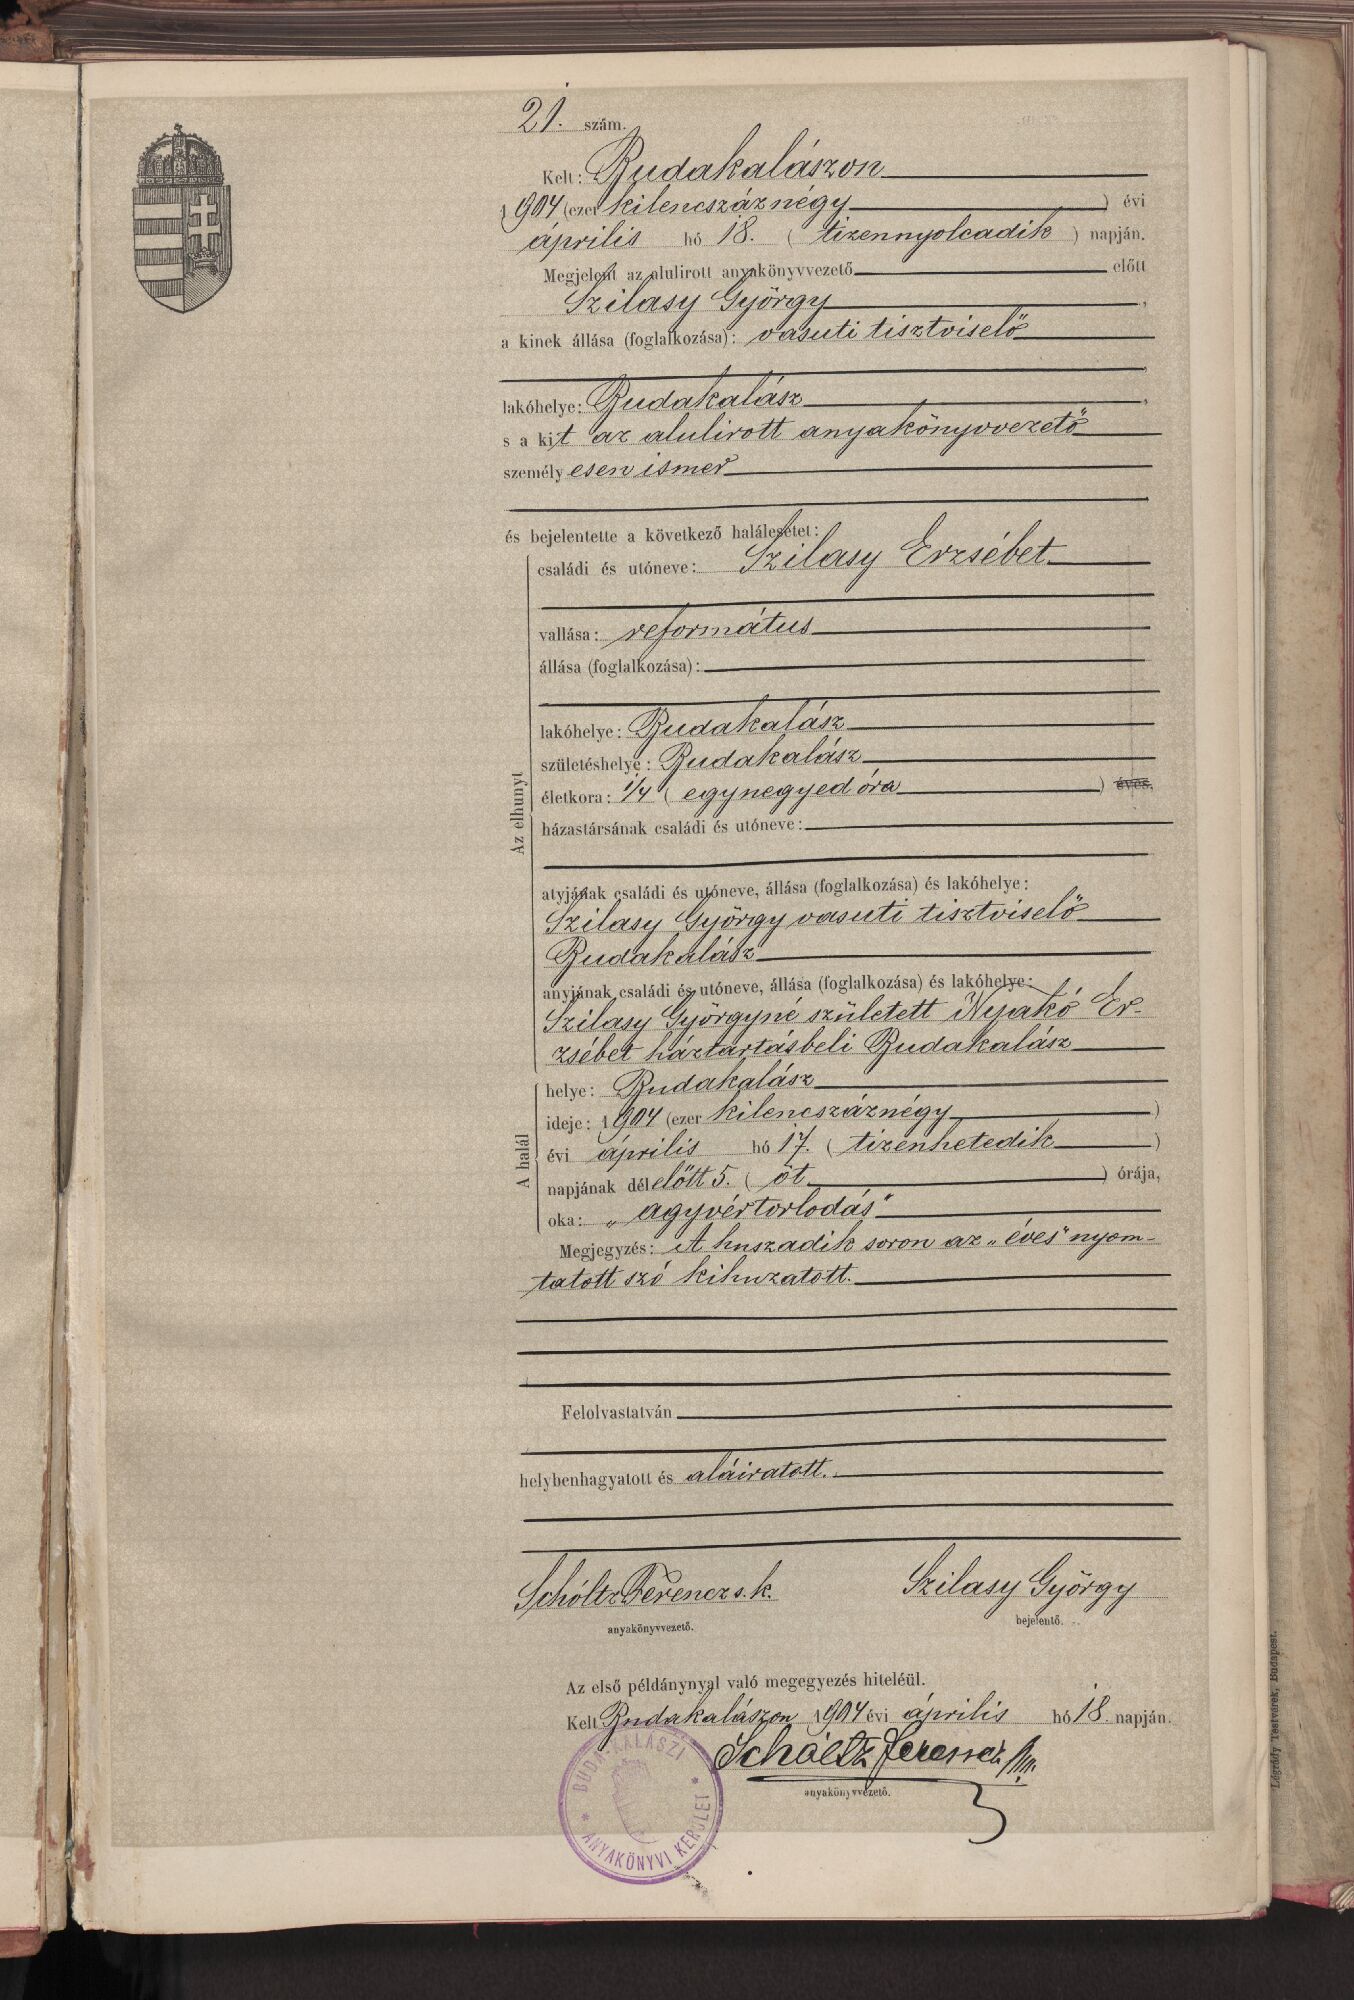 21. szám.
Kelt: Budakalászon
1904 (ezer kilencszáznégy ) évi
április hó 18. ( tizennyolcadik ) napján.
Megjelent az alulirott anyakönyvvezető előtt
Szilasy György,
a kinek állása (foglalkozása): vasuti tisztviselő
,
lakóhelye: Budakalász ,
s a kit az alulirott anyakönyvvezető
személyesen ismer
és bejelentette a következő halálesetet:
Az elhunyt
családi és utóneve: Szilasy Erzsébet
vallása: református
állása (foglalkozása):
lakóhelye: Budakalász
születéshelye: Budakalász
életkora: 1/4 ( egynegyed óra ) éves,
házastársának családi és utóneve:
atyjának családi és utóneve, állása (foglalkozása) és lakóhelye:
Szilasy György vasuti tisztviselő
Budakalász
anyjának családi és utóneve, állása (foglalkozása) és lakóhelye:
Szilasy Györgyné született Nyakó Er-
zsébet háztartásbeli Budakalász
A halál
helye: Budakalász
ideje: 1904 (ezer kilencszáznégy )
évi április hó 17. ( tizenhetedik )
napjának délelőtt 5. ( öt ) órája,
oka: „agyvértorlodás"
Megjegyzés: A huszadik soron az „éves" nyom-
tatott szó kihuzatott.
Felolvastatván
helybenhagyatott és aláiratott.
Schóltz Ferencz s. k. Szilasy György
anyakönyvvezető. bejelentő.
Az első példánynyal való megegyezés hiteléül.
Kelt Budakalászon 1904 évi április hó 18. napján.
Scholtz Ferencz
anyakönyvvezető.
BUDAKALÁSZI
* ANYAKÖNYVI KERÜLET *
Légrády Testvérek, Budapest.